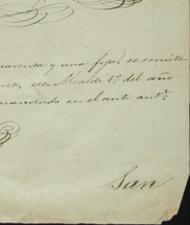 y una fojas se remite
Alcalde 1º del año
mandado en el aut antr.
San